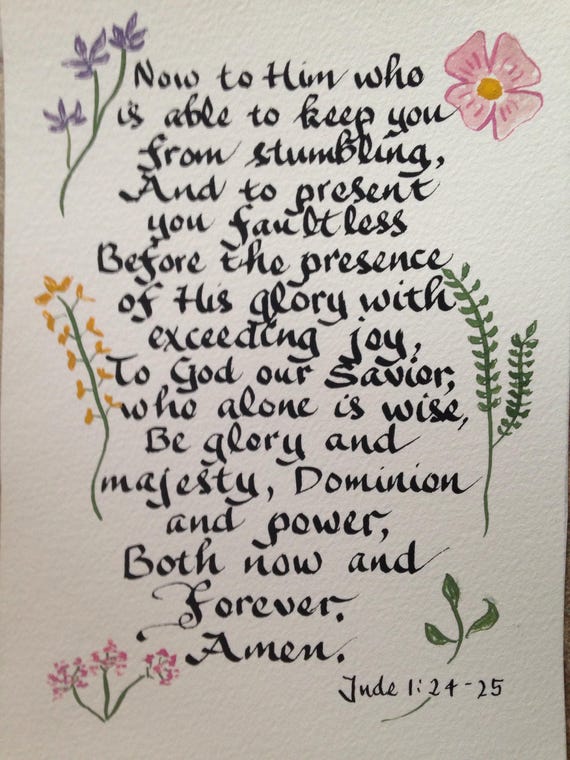 Now to Him who
is able to keep you
from stumBling,
And to present
you faultless
Before the presence
of His glory with
exceeding joy,
To God our Savior,
who alone is wise,
Be glory and
majesty, Dominion
and power,
Both now and
Forever.
Amen.
Jude 1:24-25